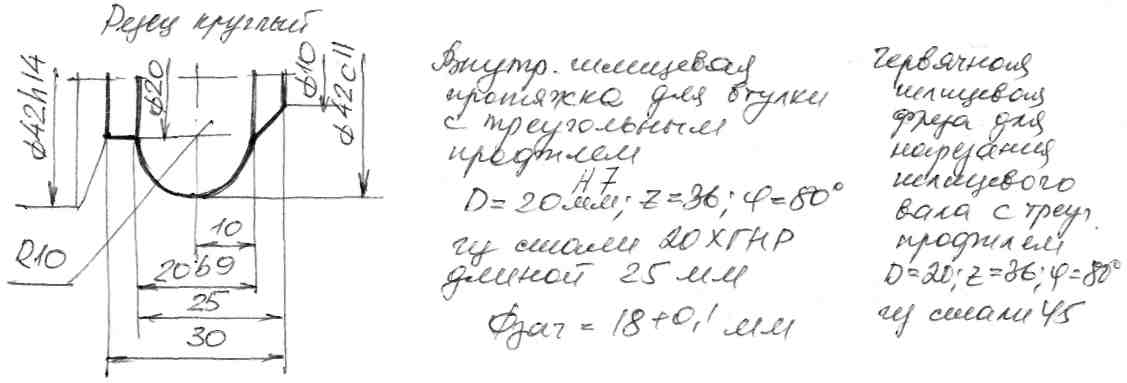 Резец круглый
ϕ42h14
ϕ20
ϕ10
ϕ42c11
R10
10
20b9
25
30
Внутр. шлицевая
протяжка для втулки
с треугольным
профилем
H7
D=20мм; Z=36; φ=80°
из стали 20ХГНР
длиной 25 мм
ϕзаг = 18+0,1 мм
Червячная
шлицевая
фреза для
нарезания
шлицевого
вала с треуг.
профилем
D=20; Z=36; φ=80°
из стали 45